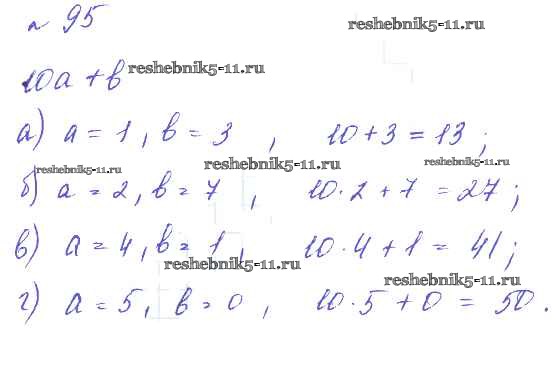 № 95 reshebnik5-11.ru
10a + b reshebnik5-11.ru
а) a = 1, b = 3, 10 + 3 = 13;
reshebnik5-11.ru reshebnik5-11.ru reshebnik5-11.ru
б) a = 2, b = 7, 10 · 2 + 7 = 27;
в) a = 4, b = 1, 10 · 4 + 1 = 41;
reshebnik5-11.ru reshebnik5-11.ru
г) a = 5, b = 0, 10 · 5 + 0 = 50.